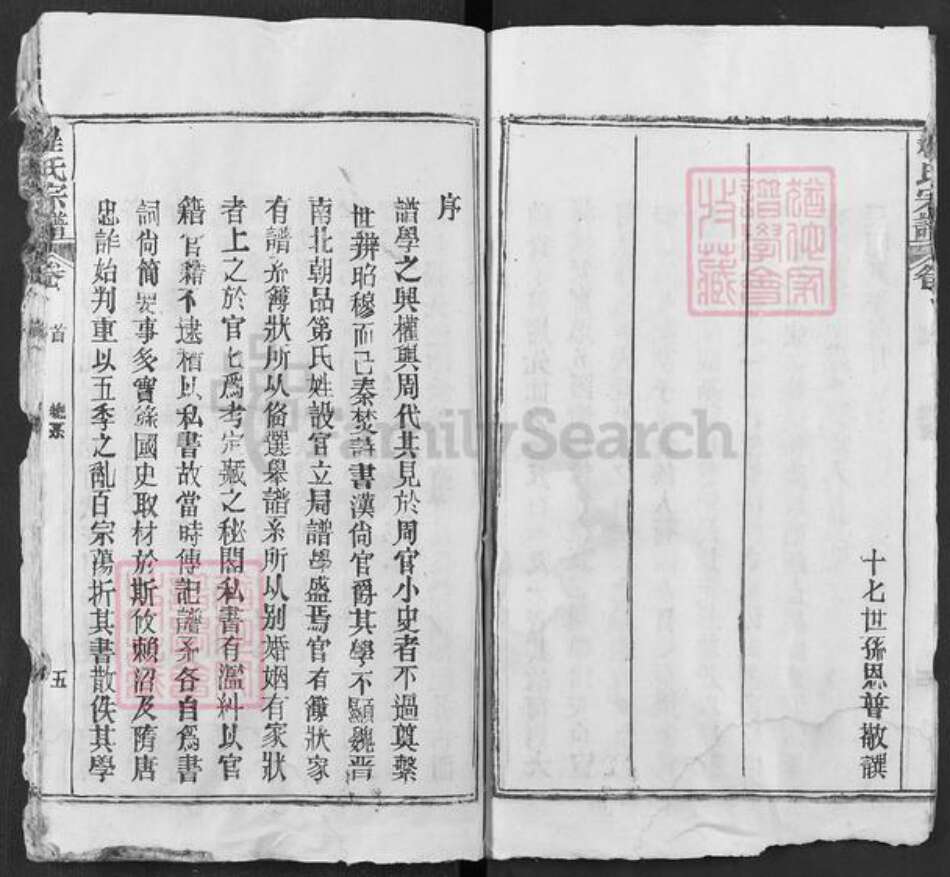 十七世孫恩普敬譔
氏宗譜
序
譜學之興權輿周代其見於周官小史者不過奠繫
世辨昭穆而已秦焚詩書漢尙官爵其學不顯魏晋
南北朝品第氏姓設官立局譜學盛焉官有簿狀家
有譜系簿狀所以偹選舉譜系所以别婚姻有家狀
者上之於官乜爲考定藏之秘閣私書有濫糾以官
籍官籍不逮稽以私書故當時傳記譜系各自爲書
詞尙簡要事多實錄國史取材於斯攸賴沿及隋唐
忠詐始判重以五季之亂百宗蕩折其書散佚其學
氏宗譜
卷
首
總系
五
猶他家譜學會收藏
FamilySearch